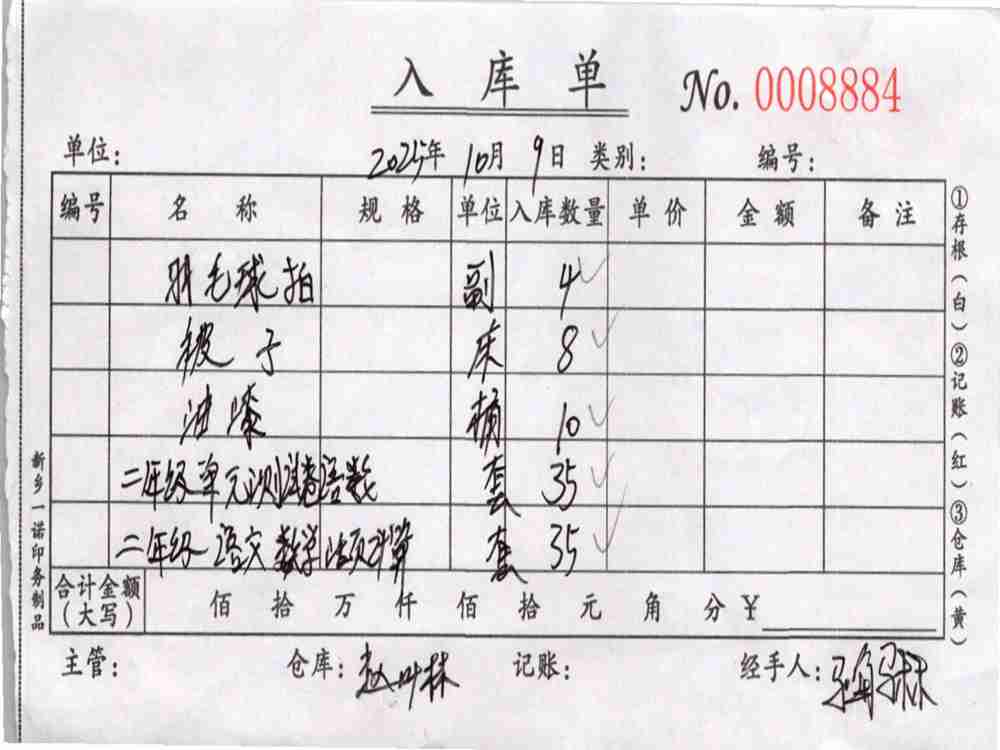 入库单 No. 0008884
单位： 2025年 10月 9日 类别： 编号：
编号 名称 规格 单位 入库数量 单价 金额 备注
羽毛球拍 副 4
被子 床 8
油漆 桶 10
二年级单元测试卷语数 套 35
二年级语文数学 套 35
合计金额（大写） 佰 拾 万 仟 佰 拾 元 角 分 ¥
主管： 仓库：赵叶林 记账： 经手人：
①存根（白）②记账（红）③仓库（黄）
新乡一诺印务制品